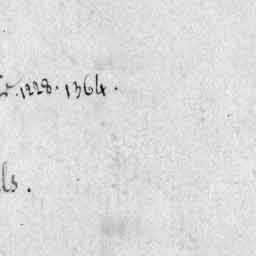 .1228.1364.
ls.